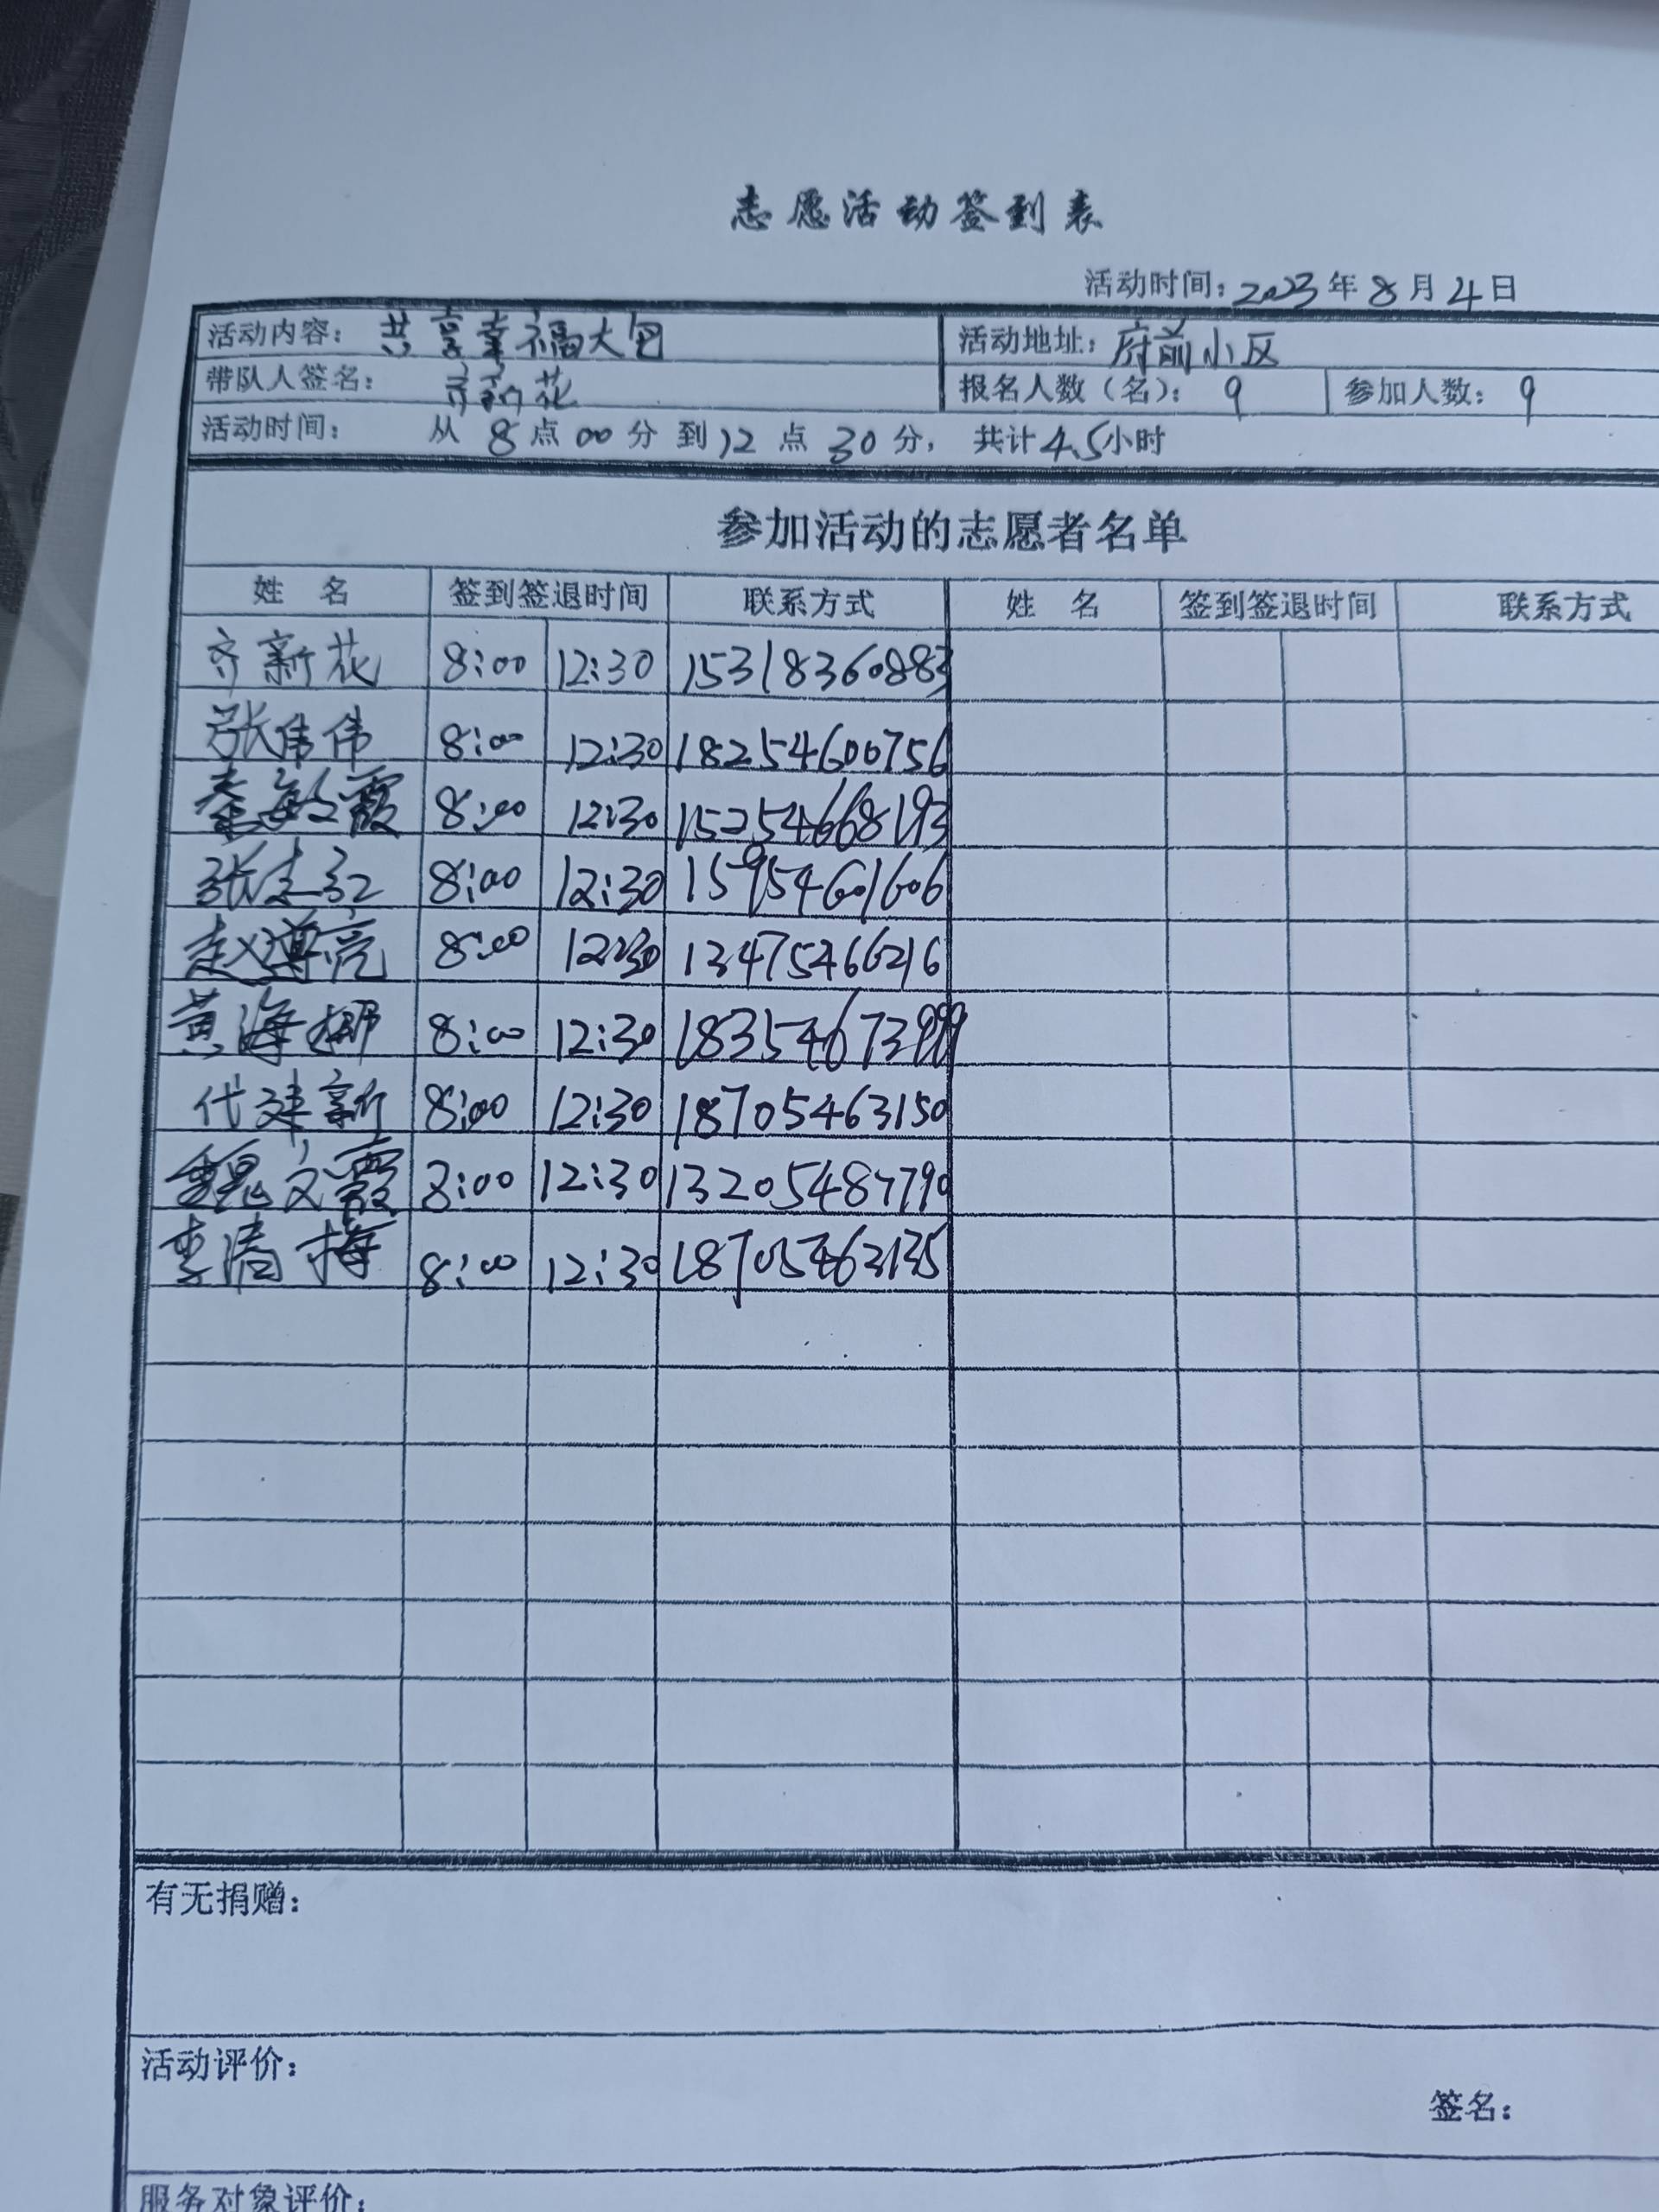 志愿活动签到表
活动时间：2023年8月4日
活动内容：共享幸福大包 活动地址：府前小区
带队人签名：齐新花 报名人数（名）：9 参加人数：9
活动时间：从8点00分到12点30分，共计4.5小时
参加活动的志愿者名单
姓 名 签到签退时间 联系方式 姓 名 签到签退时间 联系方式
齐新花 8:00 12:30 15318360883
张伟伟 8:00 12:30 18254600756
秦敏霞 8:00 12:30 15254668193
张志红 8:00 12:30 15954601606
赵博亮 8:00 12:30 13475466216
黄海娜 8:00 12:30 18354673999
代建新 8:00 12:30 18705463150
魏文霞 8:00 12:30 13205487790
李清梅 8:00 12:30 18705463135
有无捐赠：
活动评价：
签名：
服务对象评价：